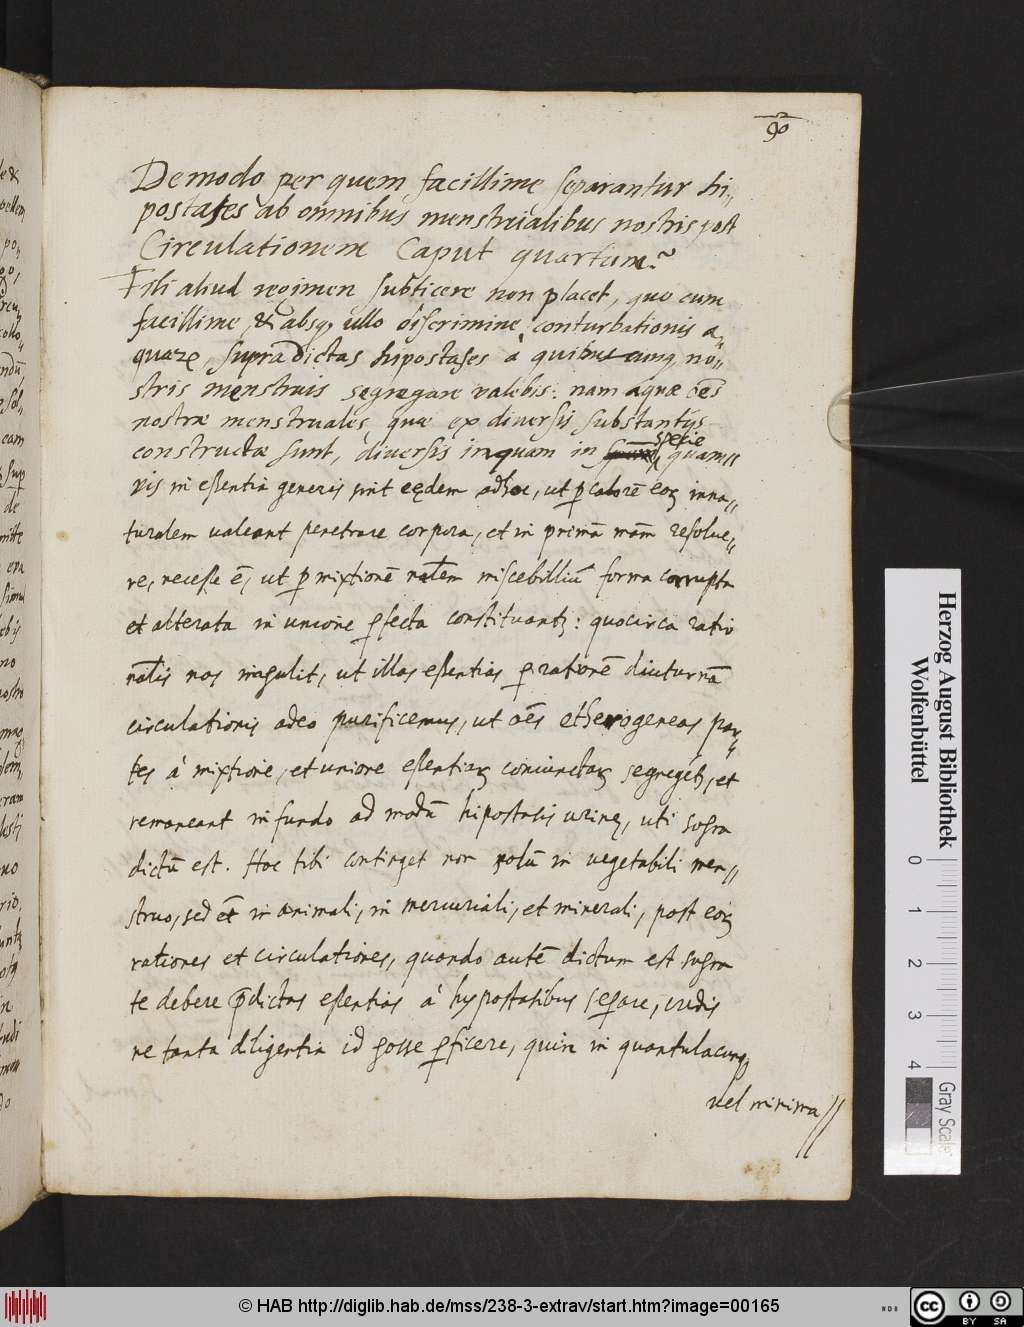 90
De modo per quem facillime separantur hi„
postases ab omnibus menstrualibus nostris post
Circulationem Caput quartum.
Fili aliud regimen subticere non placet, quo cum
facillime, & absq, ullo discrimine conturbationis a„
quarę supradictas hipostases à quibuscunq, no„
stris menstruis segregare valebis: nam aquæ oe͞s
nostræ menstruales, quæ ex diversis substantijs
constructæ sunt, diversis inquam in specie quam„
vis in essentia generis sint eędem adhoc, ut p calore͞ eoꝝ inna„
turalem valeant penetrare corpora, et in prima͞ ma͞m resolve„
re, necesse e͞, ut p mixtione͞ nal͞em miscebilliu͞ forma corrupta
et alterata in unione pfecta constituantꝫ: quocirca ratio
nal͞is nos impulit, ut illas essentias p ratione͞ diuturna͞
circulationis adeo purificemus, ut oe͞s etherogeneas par„
tes à mixtione, et unione essentiaꝝ coniunctaꝝ segregetꝫ, et
remaneant in fundo ad modu͞ hipostasis urinę, uti supra
dictu͞ est. Hoc tibi continget non solu͞ in vegetabili men„
struo, sed et͞ in animali, in mercuriali, et minerali, post eoꝝ
rationes et circulationes, quando aute͞ dictum est supra
te debere p͞dictas essentias à hypostasibus separe, credis
ne tanta diligentia id posse pficere, quin in quantulacunq,
vel minima
Herzog August Bibliothek
Wolfenbüttel
0 1 2 3 4
Gray Scale
© HAB http://diglib.hab.de/mss/238-3-extrav/start.htm?image=00165
cc BY SA